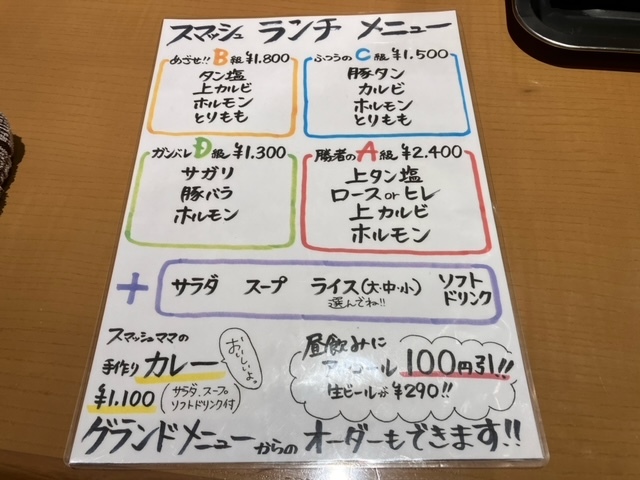 スマッシュ ランチ メニュー
めざせ!! B級 ¥1.800
タン塩
上カルビ
ホルモン
とりもも
ふつうの C級 ¥1,500
豚タン
カルビ
ホルモン
とりもも
ガンバレ D級 ¥1.300
サガリ
豚バラ
ホルモン
勝者の A級 ¥2.400
上タン塩
ロース or ヒレ
上カルビ
ホルモン
+ サラダ スープ ライス(大・中・小) ソフトドリンク
選んでね!!
スマッシュママの
手作り カレー
¥1.100 (サラダ、スープ ソフトドリンク付)
おいしいよ。
昼飲みに
アルコール 100円引!!
生ビールが¥290!!
グランドメニューからの オーダーもできます!!